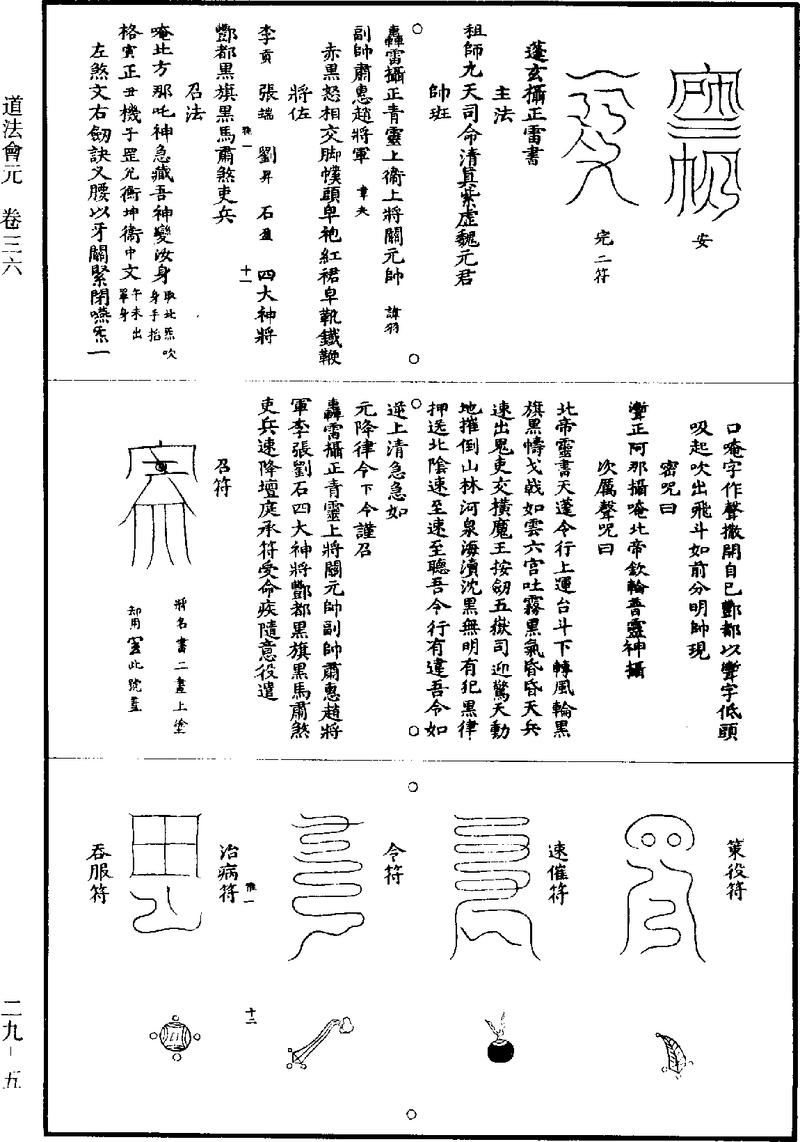 道法會元 卷三六
二九－五
安
完二符
蓬玄攝正雷書
主法
祖師九天司命清真紫虛魏元君
帥班
轟雷攝正青靈上衛上將關元帥 諱羽
副帥肅惠趙將軍
赤黑怒相交脚幞頭皁袍紅裙皁靴鐵鞭
將佐
李貢 張端 劉昇 石盈 四大神將
酆都黑旗黑馬肅煞吏兵
召法
唵北方那吒神急藏吾神變汝身 取北炁吹身手掐
格寅正丑機子罡允衝坤衛中文 午未出單身
左煞文右劒訣叉腰以牙關緊閉嚥炁一
口唵字作聲撒開自己酆都以㘕字低頭
吸起吹出飛斗如前分明帥現
密咒曰
㘕正阿那攝唵北帝欽輪普靈神攝
次厲聲咒曰
北帝靈書天蓬令行上運台斗下轉風輪黑
旗黑幬戈戟如雲六宮吐霧黑氣昏昏天兵
速出鬼吏交橫魔王按劒五嶽司迎驚天動
地摧倒山林河泉海瀆沈黑無明有犯黑律
押送北陰速至速至聽吾令行有違吾令如
逆上清急急如
元降律令下令謹召
轟雷攝正青靈上將關元帥副帥肅惠趙將
軍李張劉石四大神將酆都黑旗黑馬肅煞
吏兵速降壇庭承符受命疾隨意役遣
召符
將名書二畫上塗
却用
此號蓋
策役符
速催符
令符
治病符
吞服符
十一
十二